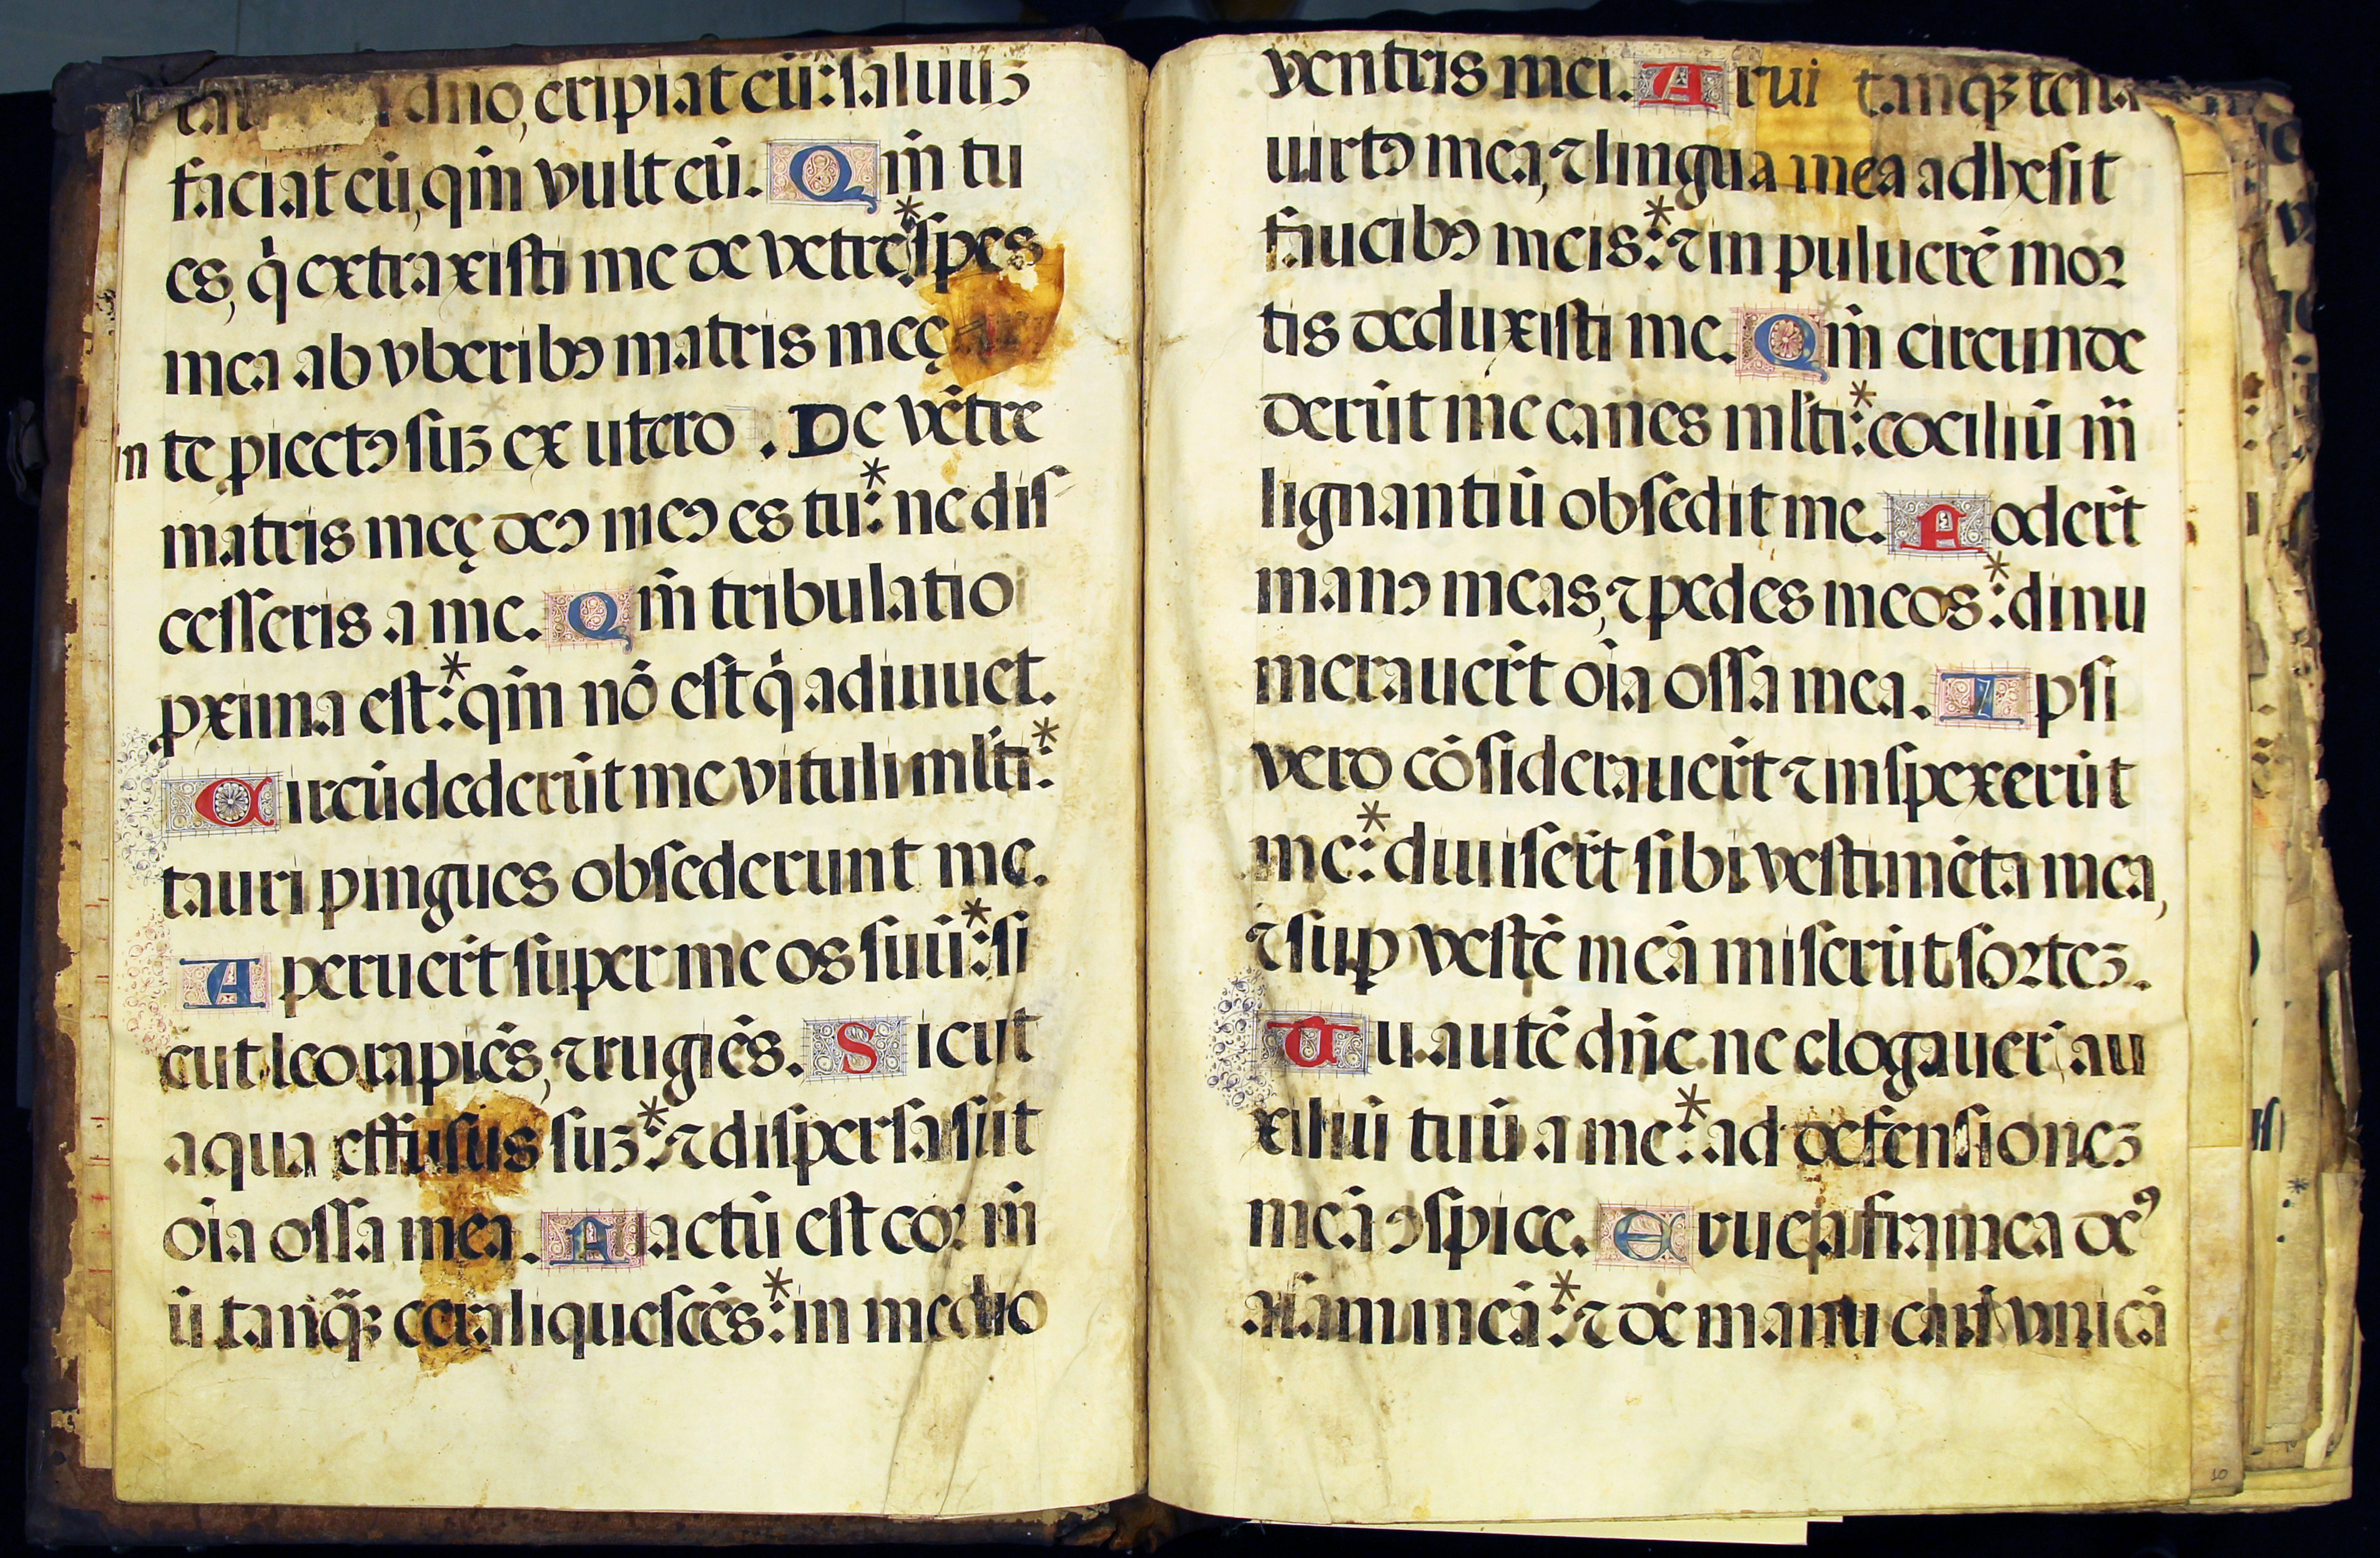 dño, eripiat eū: saluuꝫ
faciat eū, qm̄ vult eū. Qm̄ tu
es, q̇ extraxisti me de vētre:* spes
mea ab vberibꝰ matris meę
in te ꝓiectꝰ suꝫ ex utero. De vētre
matris meę deꝰ meꝰ es tu:* ne dis
cesseris a me. Qm̄ tribulatio
ꝓxima est:* qm̄ nō est q̇ adiuuet.
Circūdederūt me vituli ml̄ti:*
tauri pingues obsederunt me.
Aperuer̄t super me os suū:* si
cut leo rapiēs, ⁊ rugiēs. Sicut
aqua effusus suꝫ:* ⁊ dispersa sūt
oīa ossa mea. Factū est cor m̄
ū tanq̄ꝫ cera liquescēs:* in medio
ventris mei. Arui tanqꝫ testa
uirtꝰ meā, ⁊ lingua mea adhesit
faucibꝰ meis:* ⁊ in puluerē mor
tis deduxisti me. Qm̄ circunde
derūt me canes ml̄ti:* cōciliū m̄
lignantiū obsedit me. Foder̄t
manꝰ meas, ⁊ pedes meos:* dinu
merauer̄t oīa ossa mea. Ipsi
vero cōsiderauer̄t ⁊ inspexerūt
me:* diuiser̄t sibi vestimēta mea,
⁊ suꝑ vestē meā miserūt sorteꝫ.
Tu autē dn̄e ne elōgauer̄ au
xiliū tuū a me:* ad defensioneꝫ
meā ꝯspice. Erue a framea deꝰ
aīam meā:* ⁊ de manu canis vnicā
10